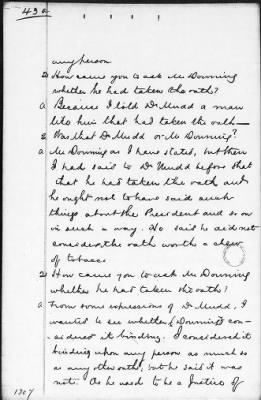 43a
any person
Q How came you to ask Mr Downing
whether he had taken the oath?
A Because I told Dr Mudd a man
like him that had taken the oath—
Q Was that Dr Mudd or Mr Downing?
A Mr Downing as I have stated, but then
I had said to Dr Mudd before that
that he had taken the oath and
he ought not to have said such
things about the President and so on
in such a way. He said he did not
consider the oath worth a chew
of tobacco.
Q How came you to ask Mr Downing
whether he had taken the oath?
A From some expressions of Dr Mudd, I
wanted to see whether (Downing) con-
sidered it binding. I considered it
binding upon any person as much so
as any other oath, but he said it was
not. As he used to be a Justice of
1307